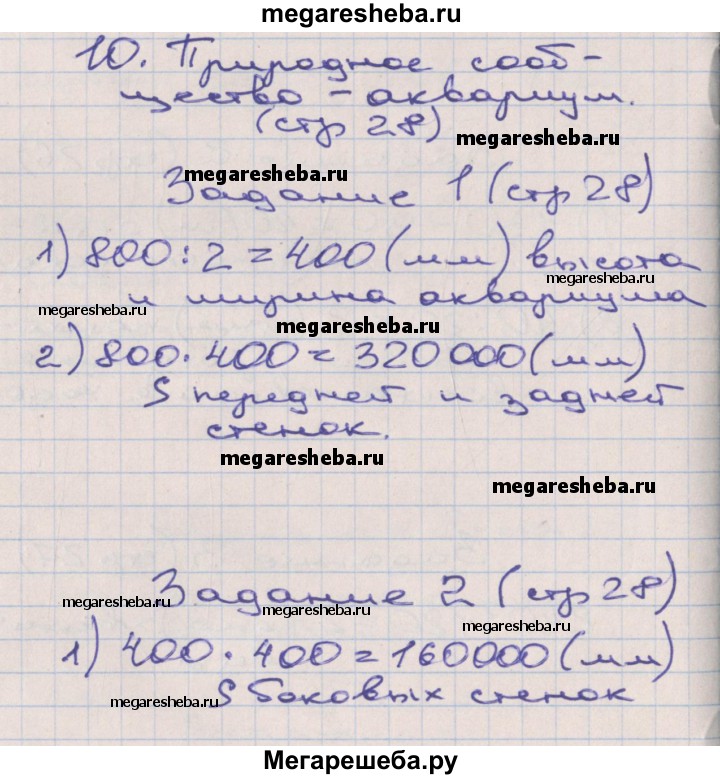 megaresheba.ru
10. Природное сооб-
щество - аквариум.
(стр 28)
megaresheba.ru
megaresheba.ru
Задание 1 (стр 28)
1) 800 : 2 = 400 (мм) высота
megaresheba.ru
и ширина аквариума
megaresheba.ru
megaresheba.ru
2) 800 · 400 = 320 000 (мм)
S передней и задней
стенок.
megaresheba.ru
megaresheba.ru
Задание 2 (стр 28)
megaresheba.ru
megaresheba.ru
megaresheba.ru
1) 400 · 400 = 160000 (мм)
S боковых стенок
megaresheba.ru
Мегарешеба.ру